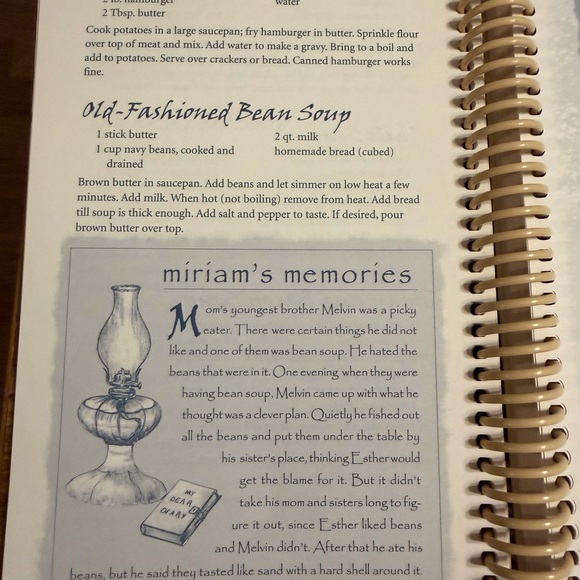 2 lb. hamburger water
2 Tbsp. butter
Cook potatoes in a large saucepan; fry hamburger in butter. Sprinkle flour
over top of meat and mix. Add water to make a gravy. Bring to a boil and
add to potatoes. Serve over crackers or bread. Canned hamburger works
fine.
Old-Fashioned Bean Soup
1 stick butter 2 qt. milk
1 cup navy beans, cooked and homemade bread (cubed)
drained
Brown butter in saucepan. Add beans and let simmer on low heat a few
minutes. Add milk. When hot (not boiling) remove from heat. Add bread
till soup is thick enough. Add salt and pepper to taste. If desired, pour
brown butter over top.
miriam's memories
Mom's youngest brother Melvin was a picky
eater. There were certain things he did not
like and one of them was bean soup. He hated the
beans that were in it. One evening when they were
having bean soup, Melvin came up with what he
thought was a clever plan. Quietly he fished out
all the beans and put them under the table by
his sister's place, thinking Esther would
get the blame for it. But it didn't
take his mom and sisters long to fig-
ure it out, since Esther liked beans
and Melvin didn't. After that he ate his
beans, but he said they tasted like sand with a hard shell around it.
MY
DEAR
DIARY